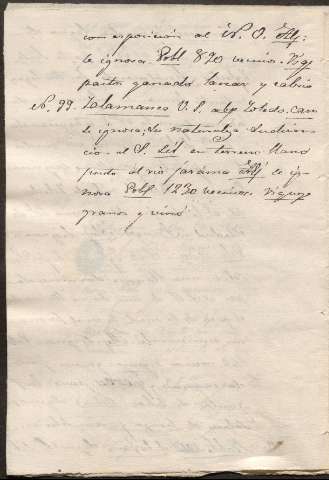 con esposición al N. O. Etf:
se ignora. Pobl 820 vecinos. Riqz
pastos ganado lanar y cabrio
Nº. 99. Talamanca V. S. Toledo. Cam
se ignora, su naturaleza
cion al S. Sit en terreno llano
junto al rio Jarama se ig-
nora Pobl 1230 vecinos. riqueza
granos y vino